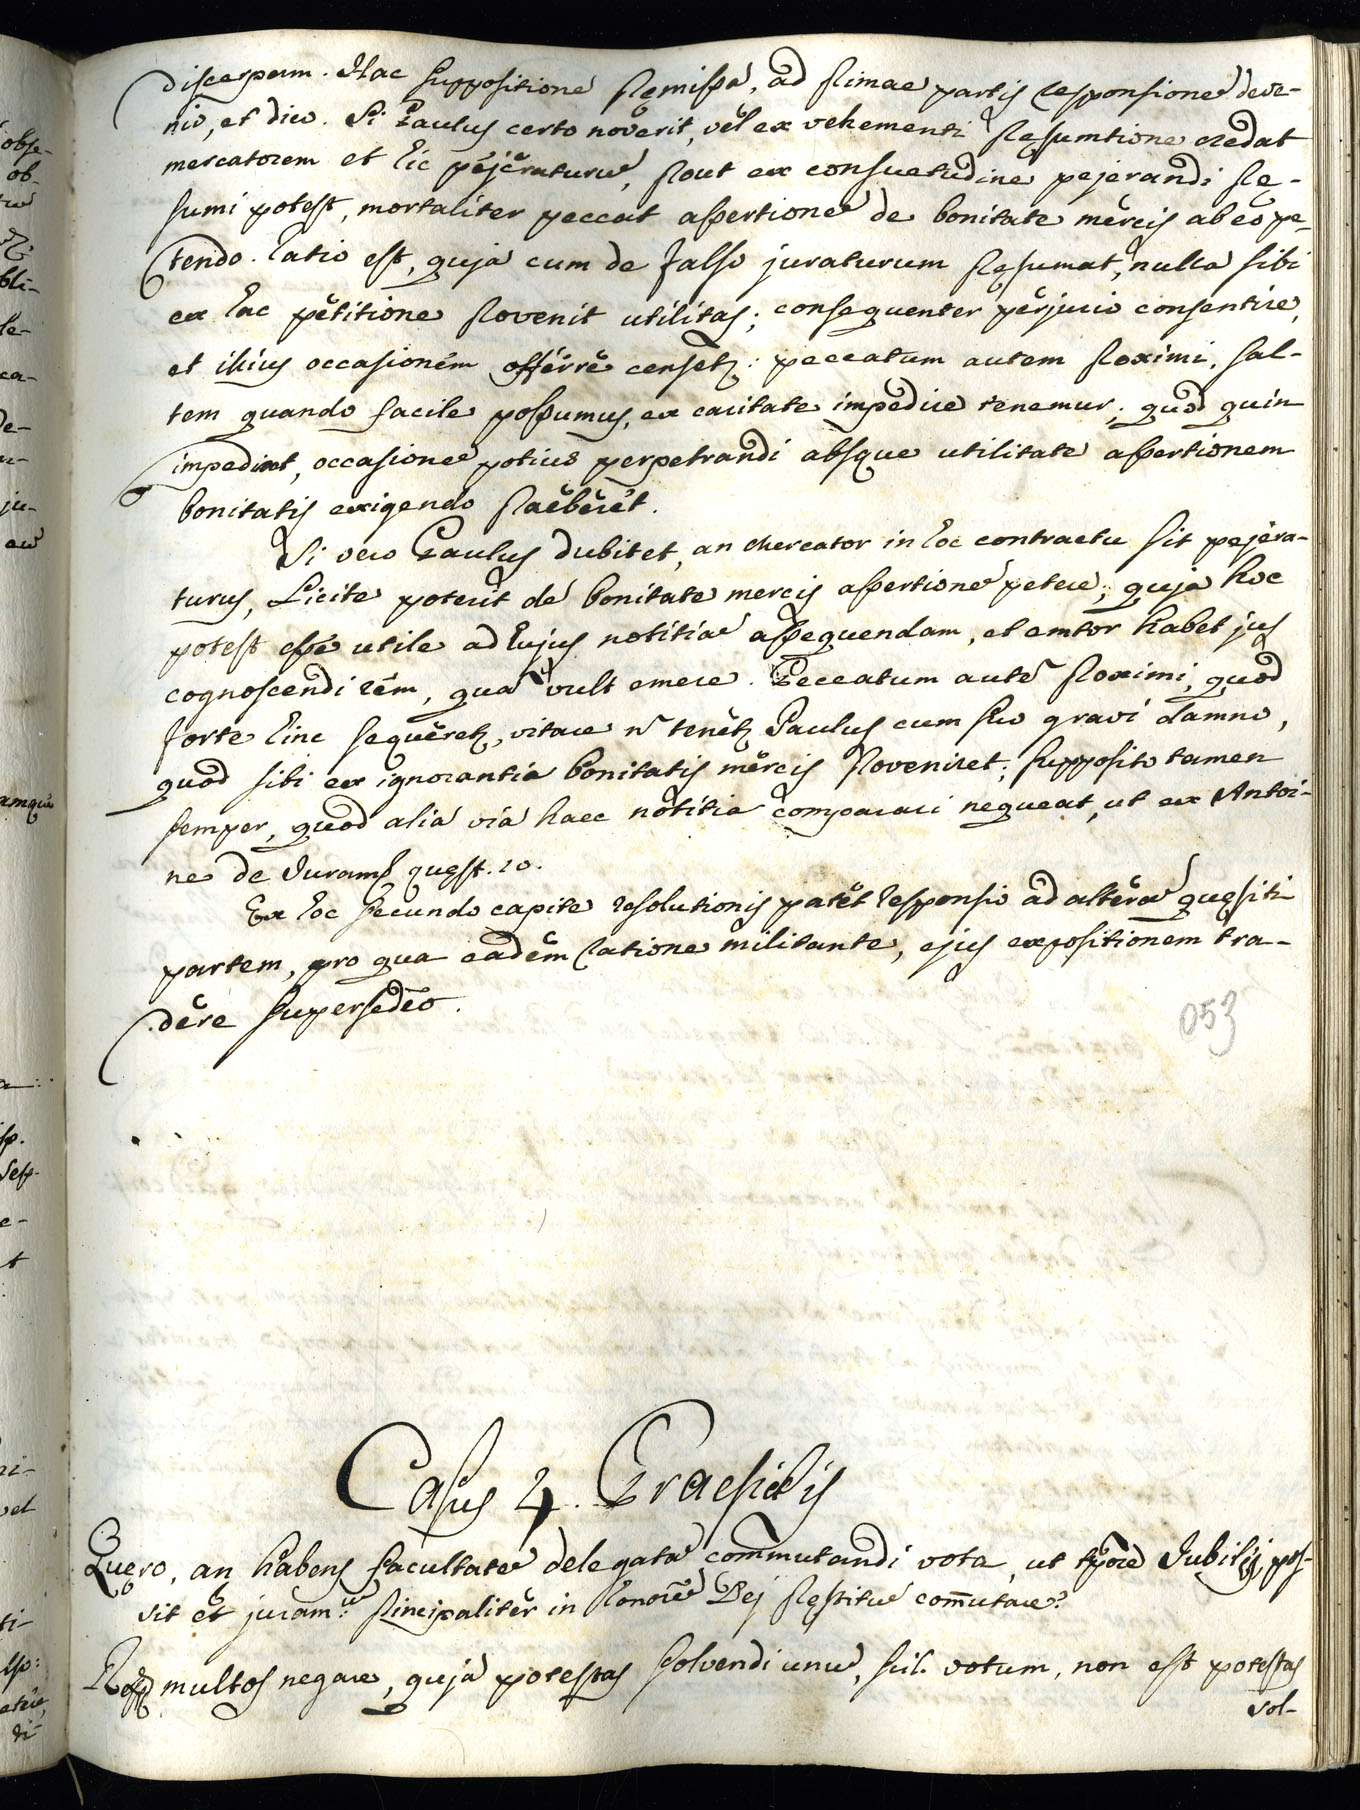 discerpam. Hac suppositione praemissa, ad primae partis responsione deve-
nio, et dico. Si Paulus certo noverit, vel ex vehementi praesumtione credat
mercatorem et hic pejeraturu, prout ex consuetudine pejerandi prae-
sumi potest, mortaliter peccat assertione de bonitate mercis ab eo pe-
tendo. Ratio est, quja cum de falso juraturum praesumat, nulla sibi
ex hac petitione provenit utilitas; consequenter perjurio consentire,
et illius occasionem offerre censetr: peccatum autem proximi, sal-
tem quando facile possumus, ex caritate impedire tenemur; quod quin
impediat, occasione potius perpetrandi absque utilitate assertionem
bonitatis exigendo praeberet.
Si vero Paulus dubitet, an Mercator in hoc contractu sit pejera-
turus, Licite poterit de bonitate mercis assertione petere; quja hoc
potest esse utile ad hujus notitia assequendam, et emtor habet jus
cognoscendi rem, qua vult emere. Peccatum aute proximi, quod
forte hinc sequeretr, vitare n tenetr Paulus cum suo gravi damno,
quod sibi ex ignorantia bonitatis mercis proveniret; supposito tamen
semper, quod alia via haec notitia comparari nequeat, ut ex Antoi-
ne de Juram quaest. 20.
Ex hoc secundo capite resolutionis patet responsio ad altera quaesiti
partem, pro qua eadem ratione militante, ejus expositionem tra-
dere supersedeo.
053
Casus 4. Praesidis
Quaero, an habens facultate delegata commutandi vota, ut tpore Jubilaei, pos-
sit et juram principaliter in honore Dej praestitu commutare?
Resp multos negare, quja potestas solvendi unu, scil. votum, non est potestas
sol-